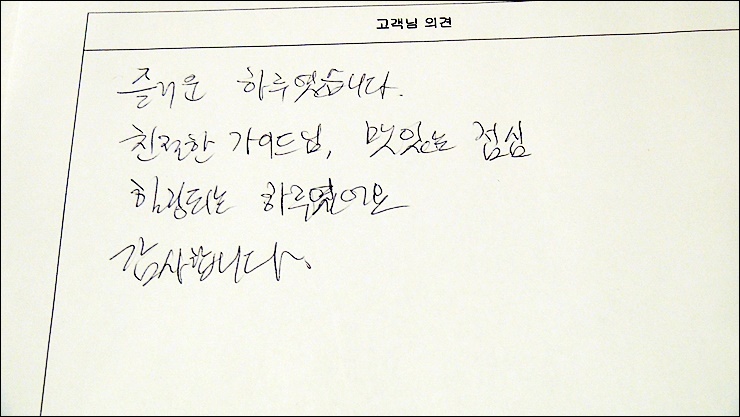 고객님 의견
즐거운 하루였습니다.
친절한 가이드님, 맛있는 점심
힐링되는 하루였어요
감사합니다.